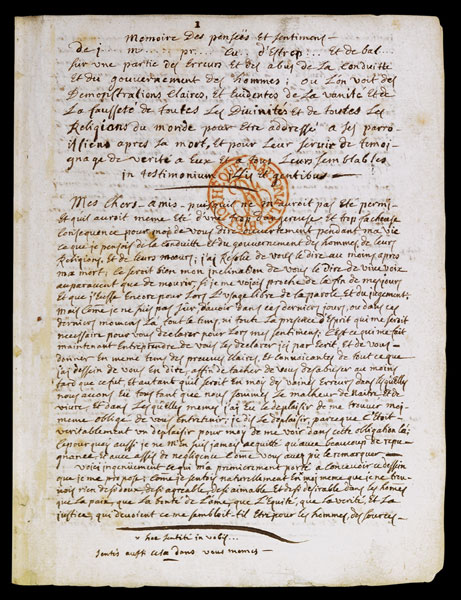 1
Memoire Des pensées Et sentimens
de j... m... pr... cu... d'Estrep... Et de bal...
sur une partie des Erreurs Et des abus de La Conduitte
Et du gouvernement des hommes; ou L'on voit des
Demonstrations Claires, et Evidentes de La vanité Et de
La fausseté de toutes Les Divinités et de toutes Les
Religions du monde pour Etre addressé a ses parro-
issiens apres sa mort, et pour Leur servir de temoi-
gnage de verité a Eux et a tous Leurs semblables
in testimonium illis et gentibus
Mes chers amis puisqu'il ne m'auroit pas Eté permis
Et qu'il auroit meme eté d'une trop dangereuse et trop facheuse
Consequence pour moy de vous dire ouvertement pendant ma vie
ce que je pensois de la conduitte et du gouvernement des hommes, de leurs
Religions, et de leurs mœurs; j'ai Resolu de vous Le dire au moins apres
ma mort; ce seroit bien mon inclination de vous Le dire de vive voix
auparavent que de mourir, si je me voiois proche de la fin de mes jours
Et que j'eusse Encore pour Lors L'usage libre de la parole Et du jugement;
Mais come je ne suis pas sûr d'avoir dans ces derniers jours, ou dans ces
derniers momens La tout le tems, ni toute La presence d'Esprit qui me seroit
necessaire pour vous declarer pour Lors mes sentimens; C'est ce qui me fait
maintenant Entreprendre de vous Les declarer ici par Ecrit, et de vous
donner En meme tems des preuves claires, Et convaincantes de tout ce que
j'ai dessein de vous En dire, affin de tacher de vous desabuser au moins
tard que ce fut, et autant qu'il seroit En moy des vaines Erreurs dans lesquelles
nous avons Eu tous tant que nous sommes Le malheur de naitre et de
vivre; et dans Lesquelles memes j'ai Eu Le deplaisir de me trouver moi-
meme obligé de vous Entretenir; je dis Le deplaisir, parceque c'Etoit
veritablement un deplaisir pour moy de me voir dans cette obligation la;
C'est pourquoi aussi je ne m'en suis jamais acquitté qu'avec beaucoup de repu-
gnance et avec assés de negligence Come vous avés pû le remarquer
Voici ingenuement ce qui m'a premierement porté a concevoir ce dessein
que je me propose; Come je sentois naturellement En moi meme que je ne trou-
vois rien de si doux, de si agreable, de si aimable et de si desirable dans les hommes
que La paix, que La bonté de L'ame, que L'Equité, que La verité et La
justice, qui devoient ce me sembloit-il Etre pour les hommes des sources
* hoc sentite in vobis...
sentés aussi cela dans vous memes